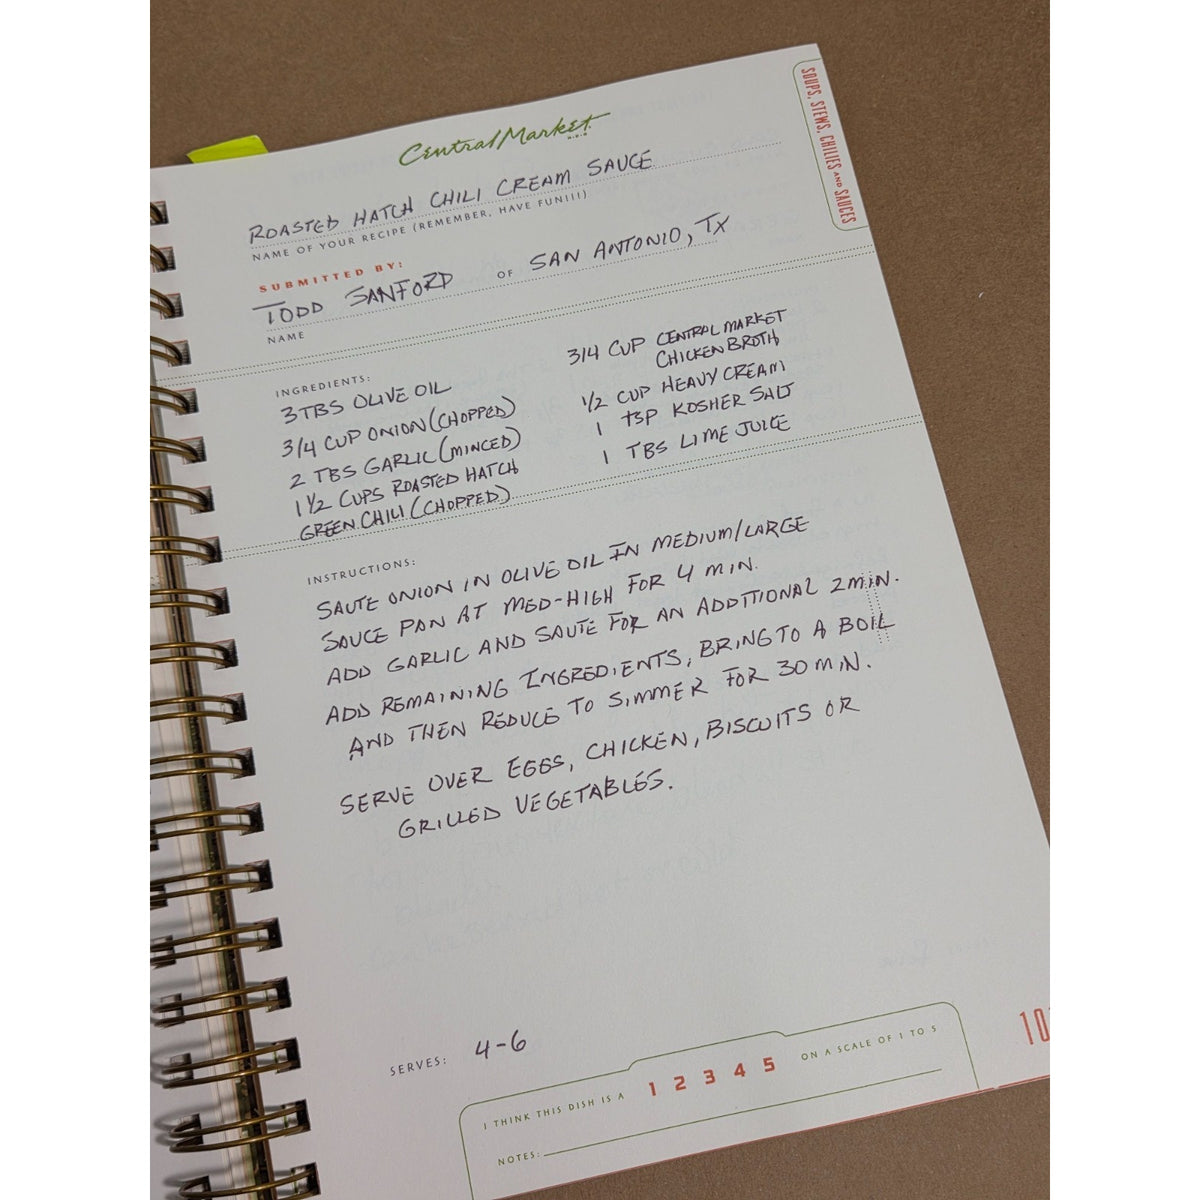 Central Market
H-E-B
SOUPS, STEWS, CHILIES AND SAUCES
ROASTED HATCH CHILI CREAM SAUCE
NAME OF YOUR RECIPE (REMEMBER, HAVE FUN!!!)
SUBMITTED BY:
TODD SANFORD OF SAN ANTONIO, TX
NAME
INGREDIENTS:
3 TBS OLIVE OIL
3/4 CUP ONION (CHOPPED)
2 TBS GARLIC (MINCED)
1 1/2 CUPS ROASTED HATCH
GREEN CHILI (CHOPPED)
3/4 CUP CENTRAL MARKET
CHICKEN BROTH
1/2 CUP HEAVY CREAM
1 TSP KOSHER SALT
1 TBS LIME JUICE
INSTRUCTIONS:
SAUTE ONION IN OLIVE OIL IN MEDIUM/LARGE
SAUCE PAN AT MED-HIGH FOR 4 MIN.
ADD GARLIC AND SAUTE FOR AN ADDITIONAL 2 MIN.
ADD REMAINING INGREDIENTS, BRING TO A BOIL
AND THEN REDUCE TO SIMMER FOR 30 MIN.
SERVE OVER EGGS, CHICKEN, BISCUITS OR
GRILLED VEGETABLES.
SERVES: 4-6
I THINK THIS DISH IS A 1 2 3 4 5 ON A SCALE OF 1 TO 5
NOTES: